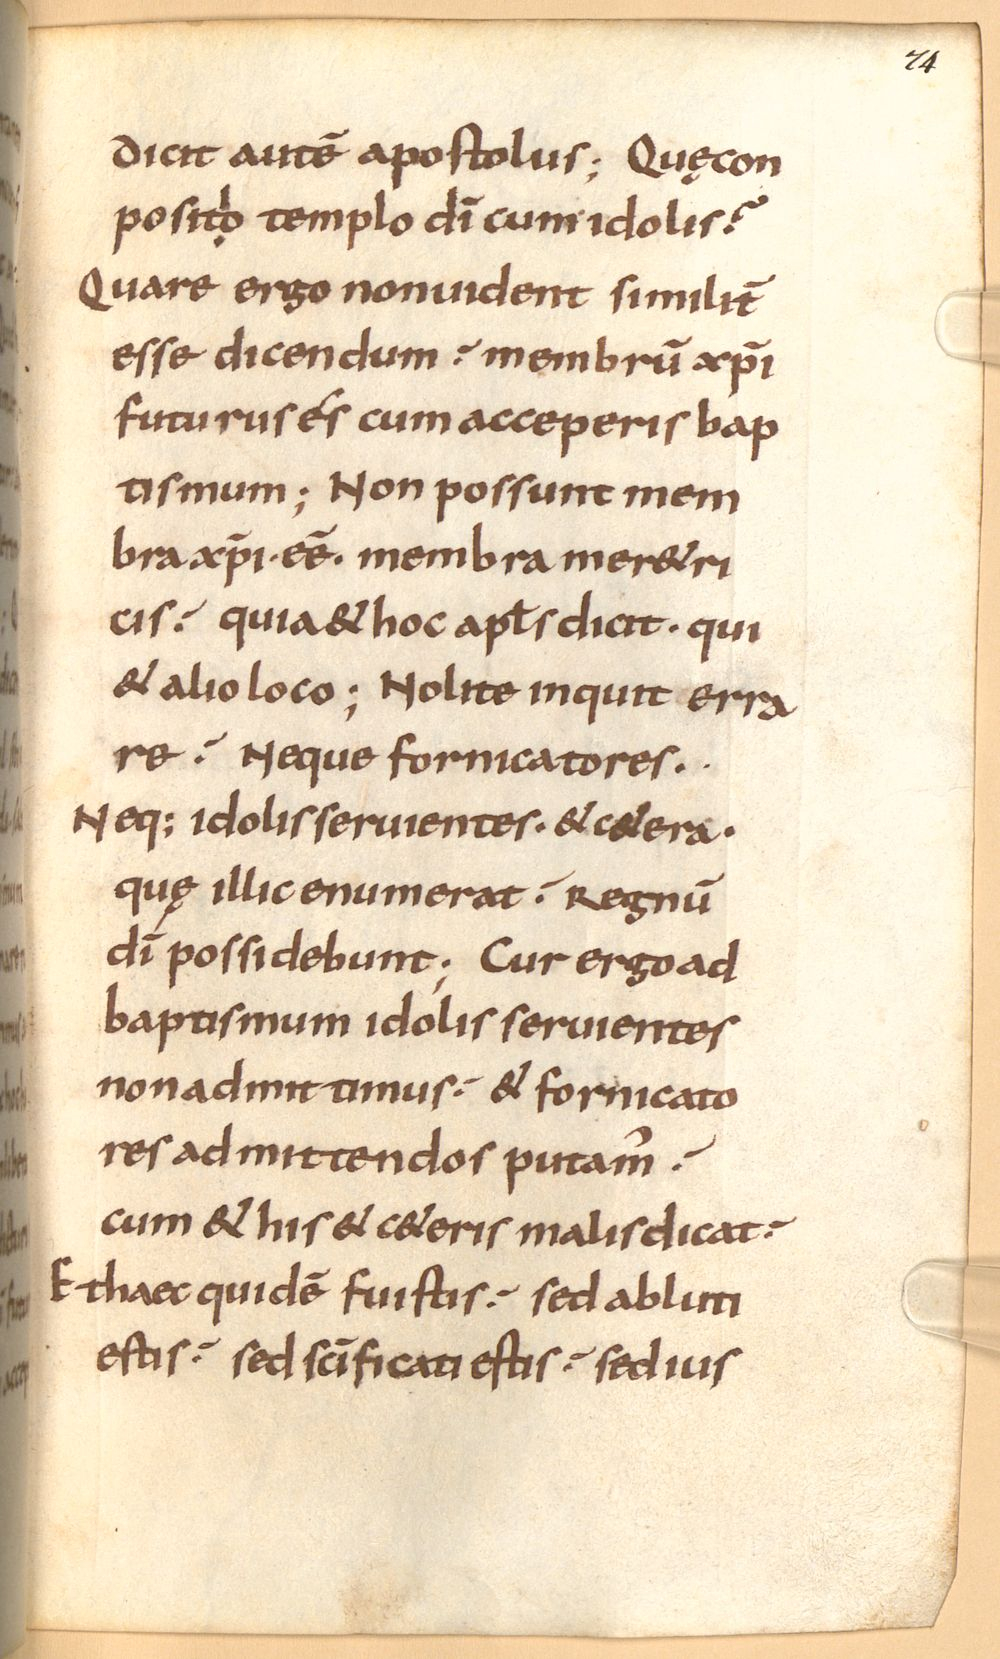 74
dicit autē apostolus; Quęcon
positọ templo dī cum idolis?
Quare ergo nonuident similit̄
esse dicendum? membrū xp̄i
futurus és cum acceperis bap
tismum; Non possunt mem
bra xp̄i· eē̄· membra mer&ri
cis? quia & hoc apłs dicit· qui
& alio loco; Nolite inquit erra
re? Neque fornicatores·
Neq; idolis seruientes· & c&era·
quę illic enumerat? Regnū
dī possidebunt; Cur ergo ad
baptismum idolis seruientes
non admittimus? & fornicato
res admittendos putam̉?
cum & his & c&eris malis dicat?
Et haec quidē fuistis? sed abluti
estis? sed scīficati estis? sed ius